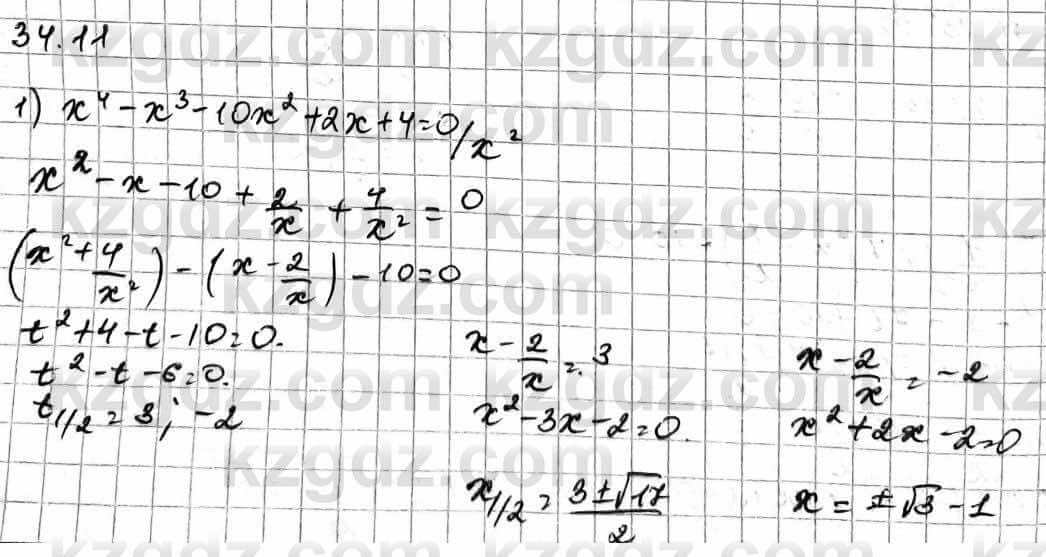 34.11
1) x⁴ - x³ - 10x² + 2x + 4 = 0 / x²
x² - x - 10 + 2/x + 4/x² = 0
(x² + 4/x²) - (x - 2/x) - 10 = 0
t² + 4 - t - 10 = 0.
t² - t - 6 = 0.
t₁/₂ = 3; -2
x - 2/x = 3
x² - 3x - 2 = 0.
x₁/₂ = (3 ± √17)/2
x - 2/x = -2
x² + 2x - 2 = 0
x = ± √3 - 1
kzgdz.com